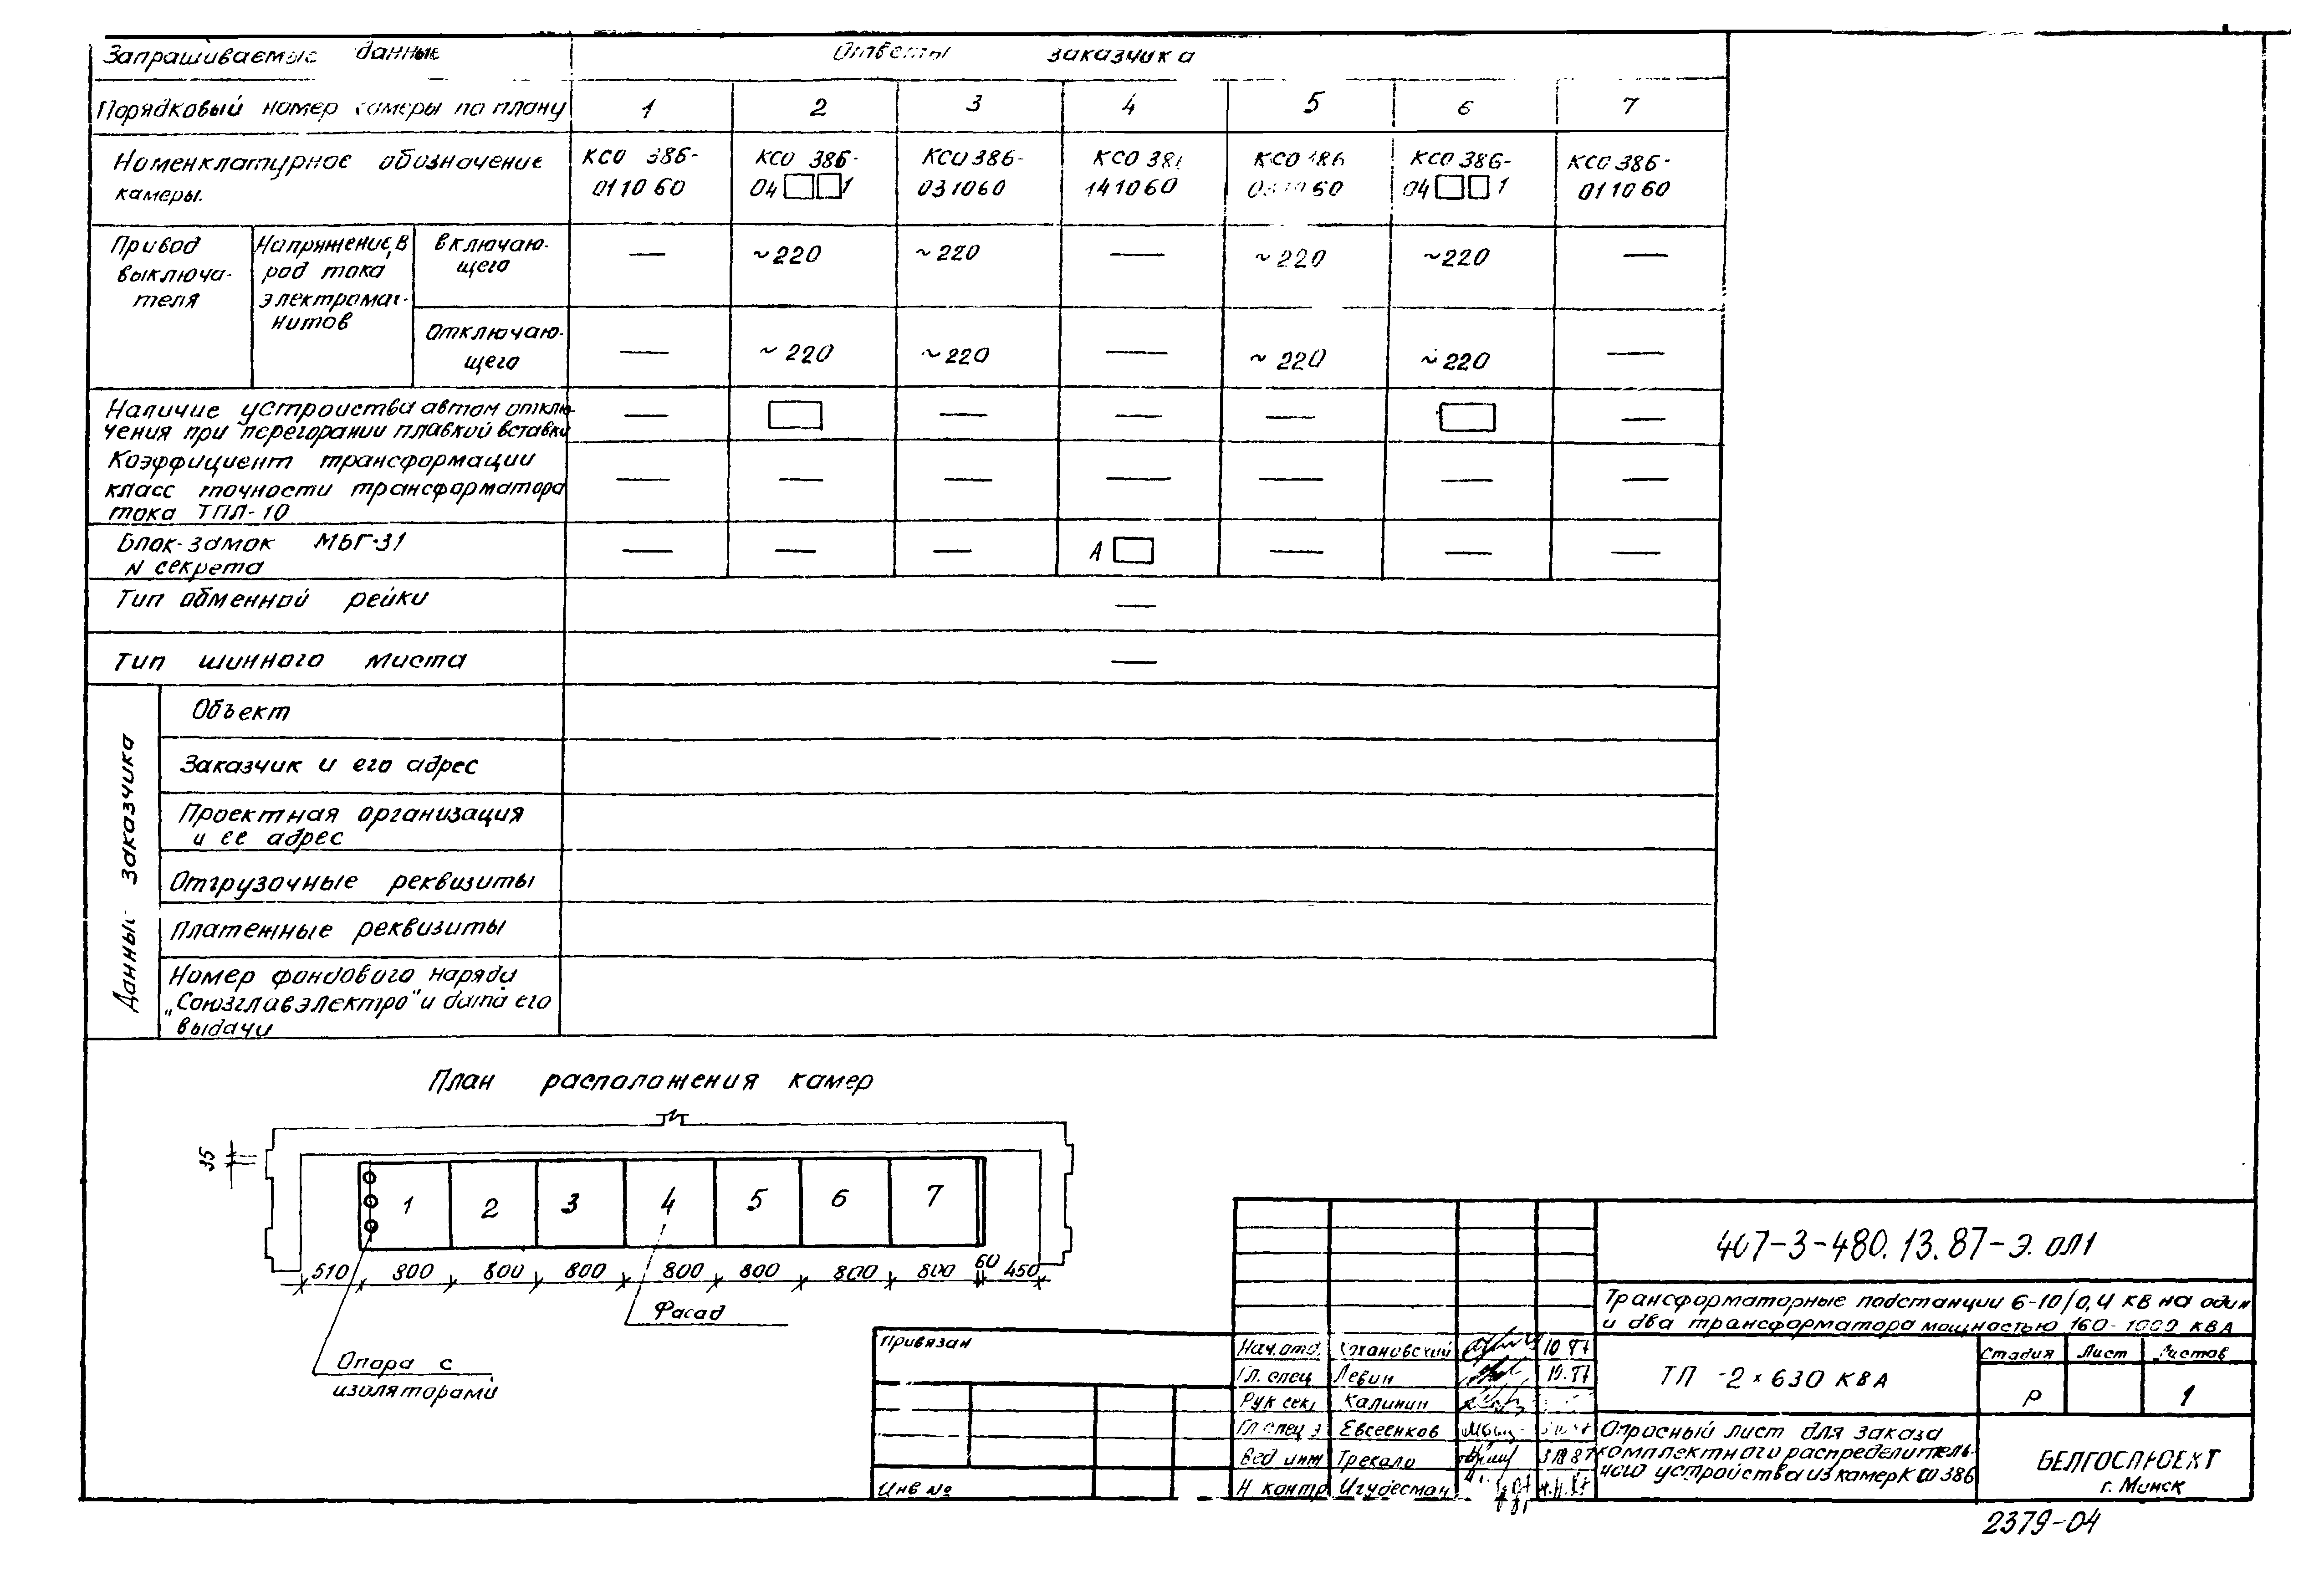 Запрашиваемые данные Ответы заказчика
Порядковый номер камеры по плану 1 2 3 4 5 6 7
Номенклатурное обозначение КСО 386- КСО 386- КСО 386- КСО 386- КСО 386-
камеры. 011060 04□□1 031060 141060 04□□1 011060
Привод Напряжение, В включаю-
выключа- род тока щего — ~220 ~220 — ~220 ~220 —
теля электромаг-
нитов
Отключаю-
щего — ~220 ~220 — ~220 ~220 —
Наличие устройства автом отклю-
чения при перегорании плавкой вставки — □ — — — □ —
Коэффициент трансформации
класс точности трансформатора — — — — — — —
тока ТПЛ-10
Блок-замок МБГ-31 — — — А □ — — —
N секрета
Тип обменной рейки —
Тип шинного моста —
Данные заказчика
Объект
Заказчик и его адрес
Проектная организация
и ее адрес
Отгрузочные реквизиты
Платежные реквизиты
Номер фондового наряда
„Союзглавэлектро" и дата его
выдачи
План расположения камер
35
1 2 3 4 5 6 7
510 800 800 800 800 800 800 800 60 450
Фасад
Опора с
изоляторами
Привязан
Инв №
407-3-480.13.87-Э.ОЛ1
Трансформаторные подстанции 6-10/0,4 кВ на один
и два трансформатора мощностью 160-1000 кВА
Нач.отд. Кохановский 10.87
Гл. спец Левин 10.87
Рук сек. Калинин
Гл спец э Евсеенков
Вед инж Трекало
Н контр Игудесман
ТП -2×630 кВА
Стадия Лист Листов
Р 1
Опросный лист для заказа
комплектного распределитель-
ного устройства из камер КСО 386
БЕЛГОСПРОЕКТ
г. Минск
2379-04